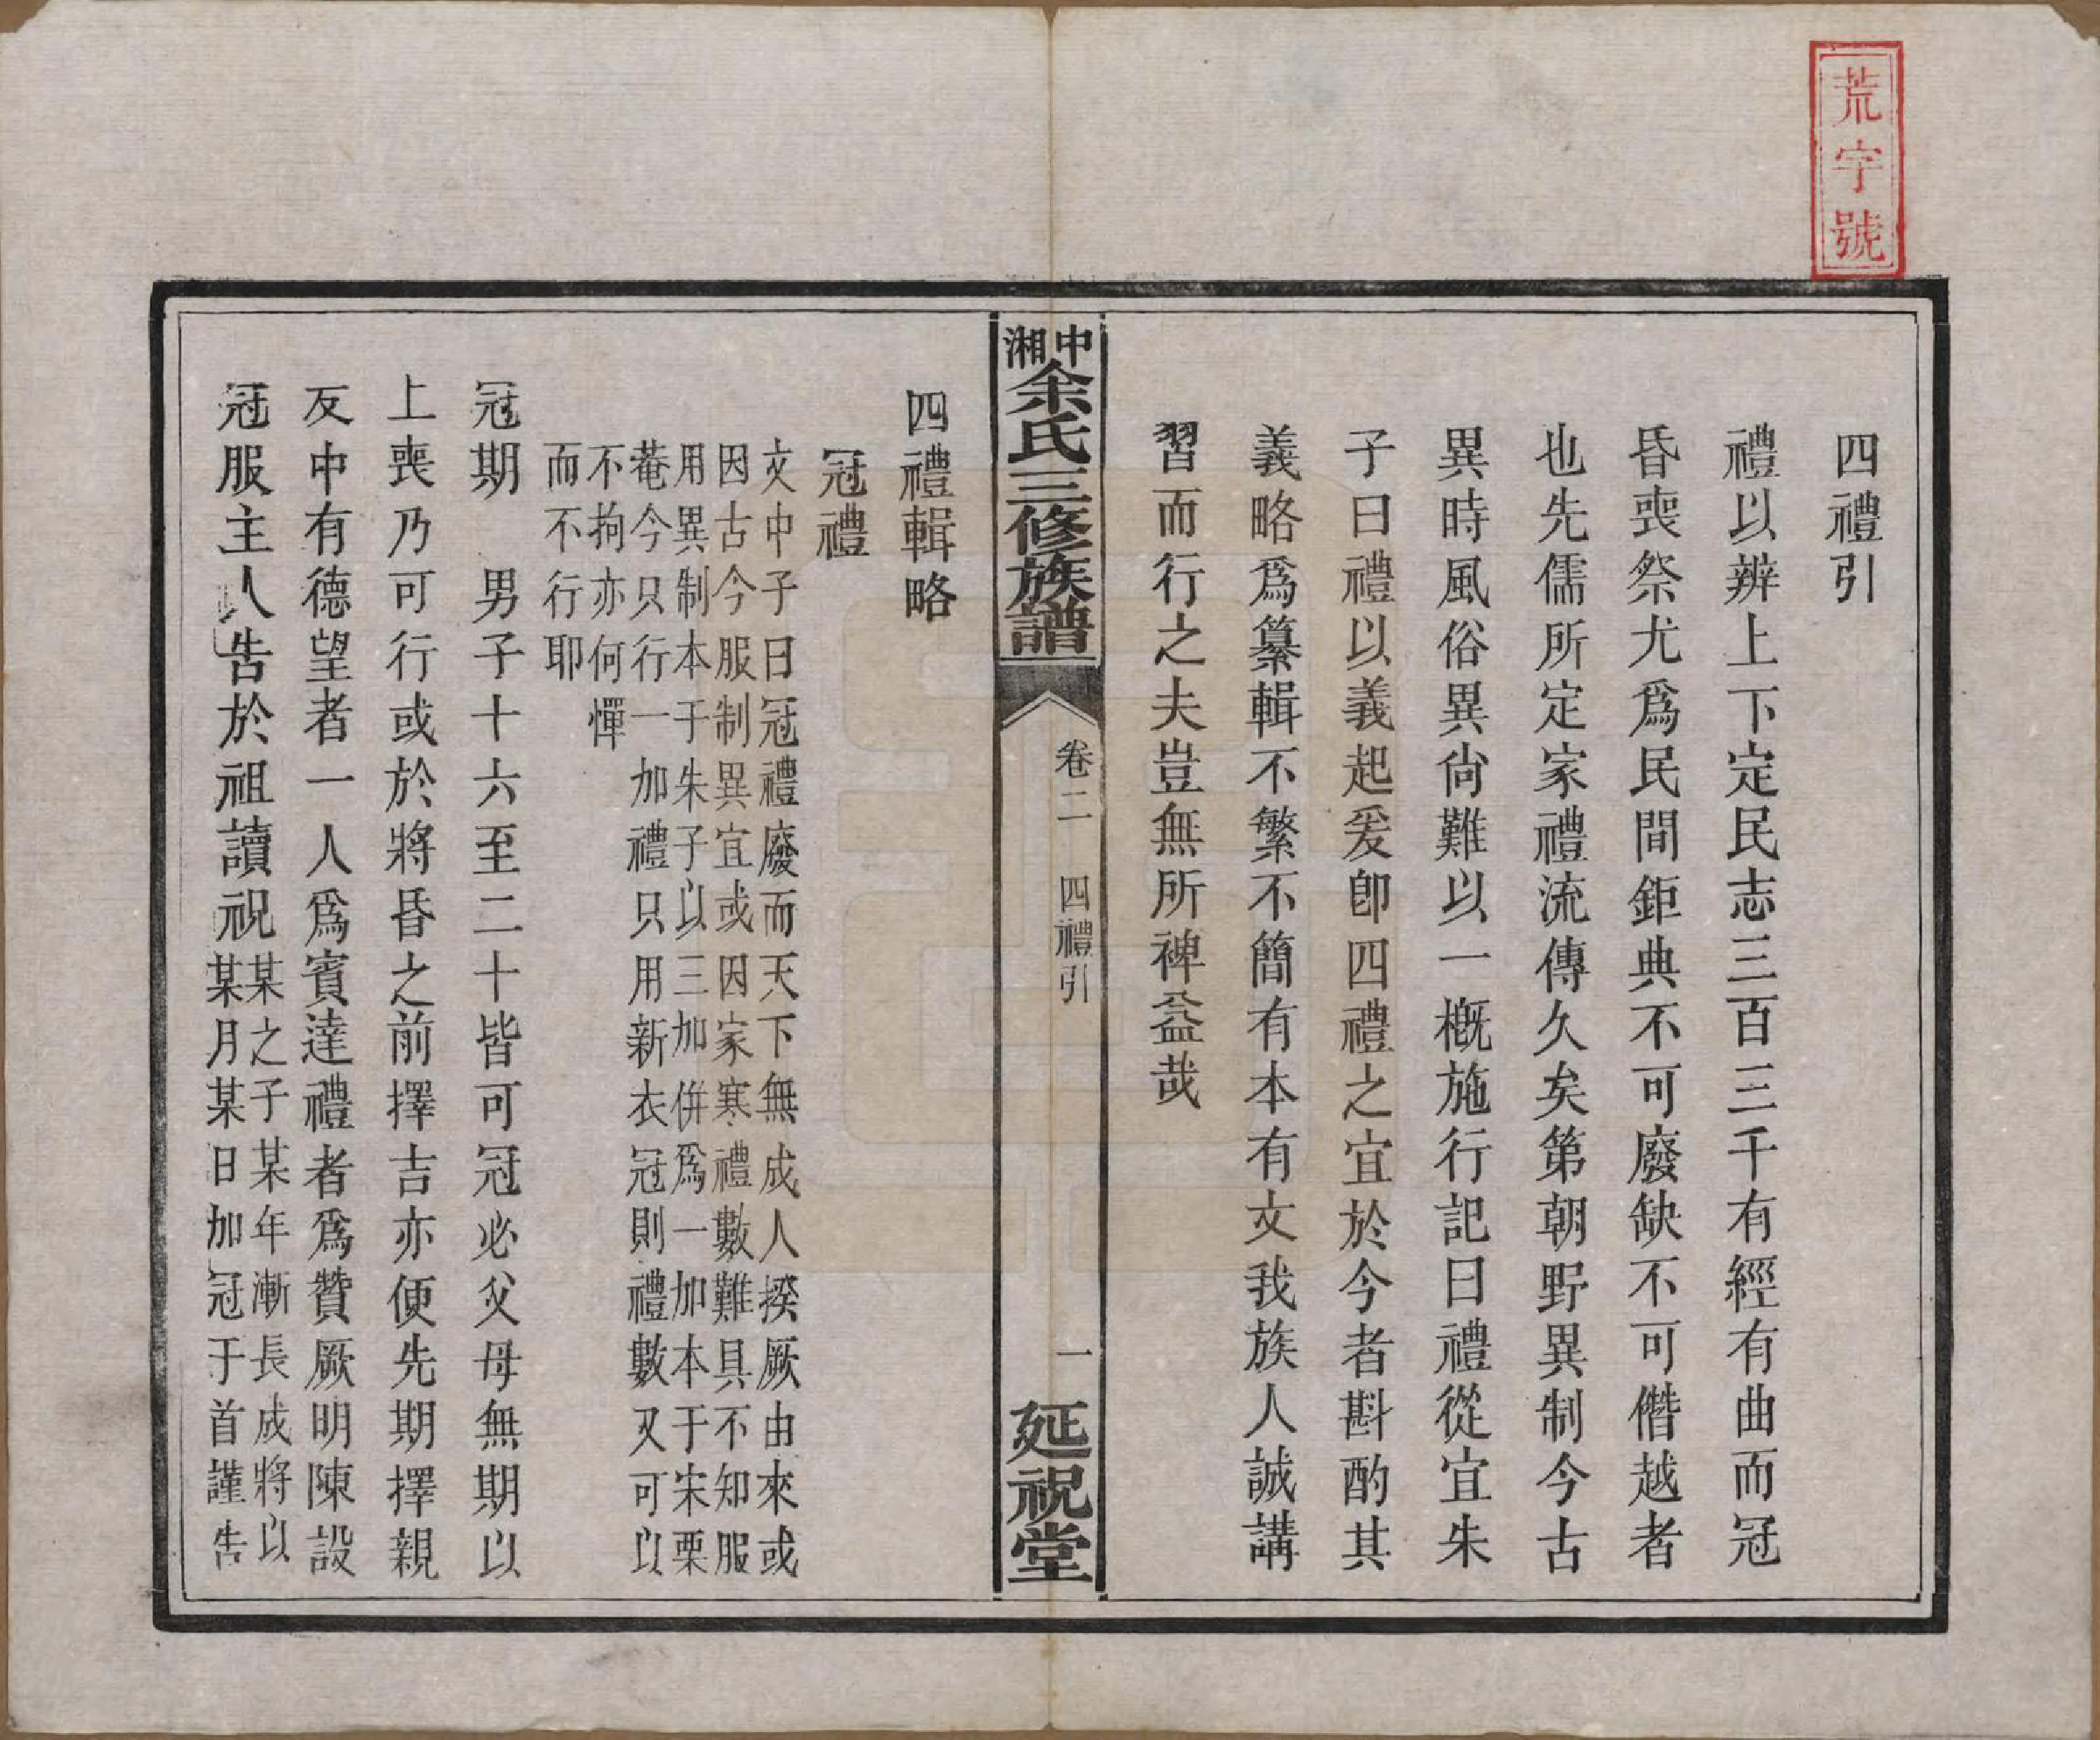 荒字號
四禮引
禮以辨上下定民志三百三千有經有曲而冠
昏喪祭尤爲民間鉅典不可廢缺不可僭越者
也先儒所定家禮流傳久矣第朝野異制今古
異時風俗異尙難以一槪施行記曰禮從宜朱
子曰禮以義起爰卽四禮之宜於今者斟酌其
義略爲纂輯不繁不簡有本有文我族人誠講
習而行之夫豈無所裨益哉
湘中余氏三修族譜
卷二 四禮引
一
延祝堂
四禮輯略
冠禮
文中子曰冠禮廢而天下無成人揆厥由來或
因古今服制異宜或因家寒禮數難具不知服
用異制本于朱子以三加併爲一加本于宋栗
菴今只行一加禮只用新衣冠則禮數又可以
不拘亦何憚
而不行耶
冠期 男子十六至二十皆可冠必父母無期以
上喪乃可行或於將昏之前擇吉亦便先期擇親
友中有德望者一人爲賓達禮者爲贊厥明陳設
冠服主人告於祖讀祝某之子某年漸長成將以
某月某日加冠于首謹告